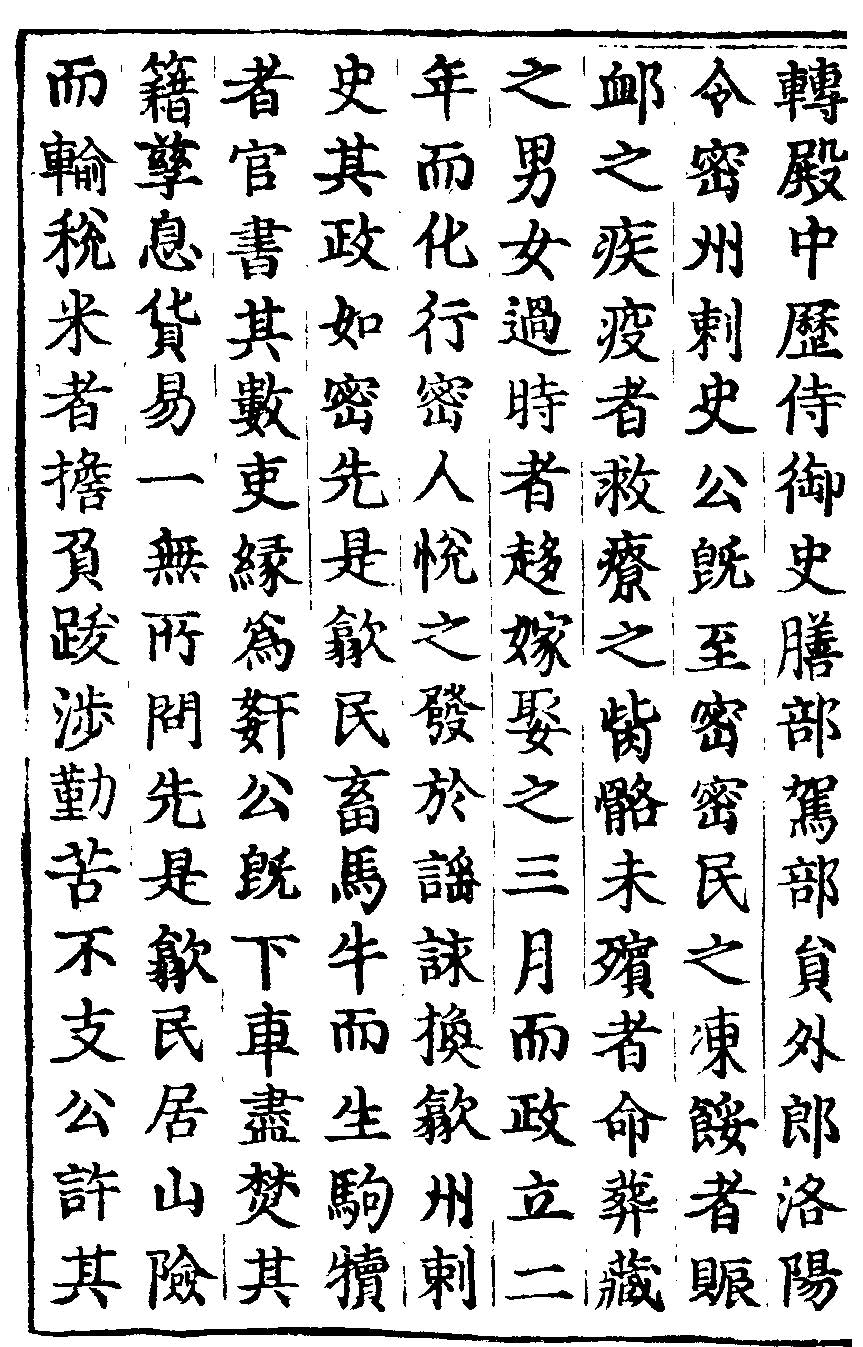 轉殿中歷侍御史膳部駕部貟外郎洛陽
令密州刺史公旣至密密民之凍餒者賑
䘏之疾疫者救療之胔骼未殯者命葬藏
之男女過時者趍嫁娶之三月而政立二
年而化行密人悅之發於謡誎換歙州刺
史其政如密先是歙民畜馬牛而生駒犢
者官書其數吏緣爲姧公旣下車盡焚其
籍孳息貨易一無所問先是歙民居山險
而輸稅米者擔負跋涉勤苦不支公許其